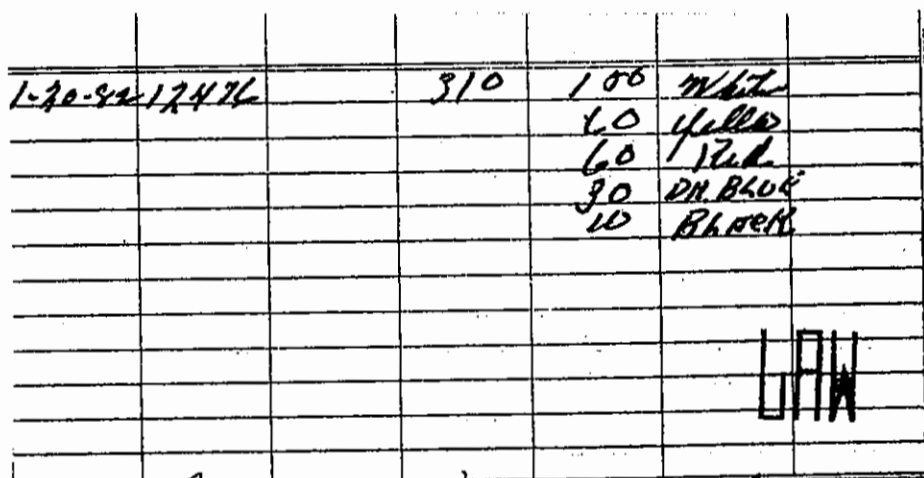 1-20-82 12476 310 150 White
60 Yellow
60 Red
30 DK. BLUE
10 BLACK
UAW